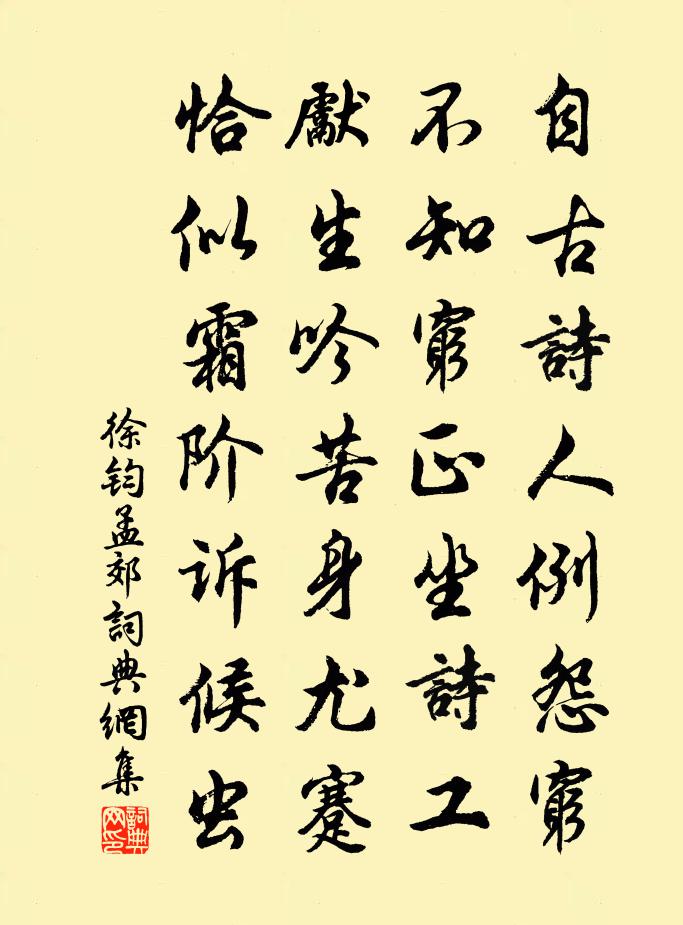 自古詩人例怨窮
不知窮正坐詩工
獻生吟苦身尤蹇
恰似霜阶诉候虫
徐鈞孟郊詞典網集
詞典網印